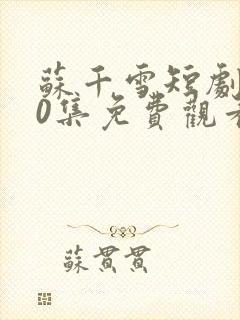 蘇千雪短劇
0集免費觀看
蘇貫貫